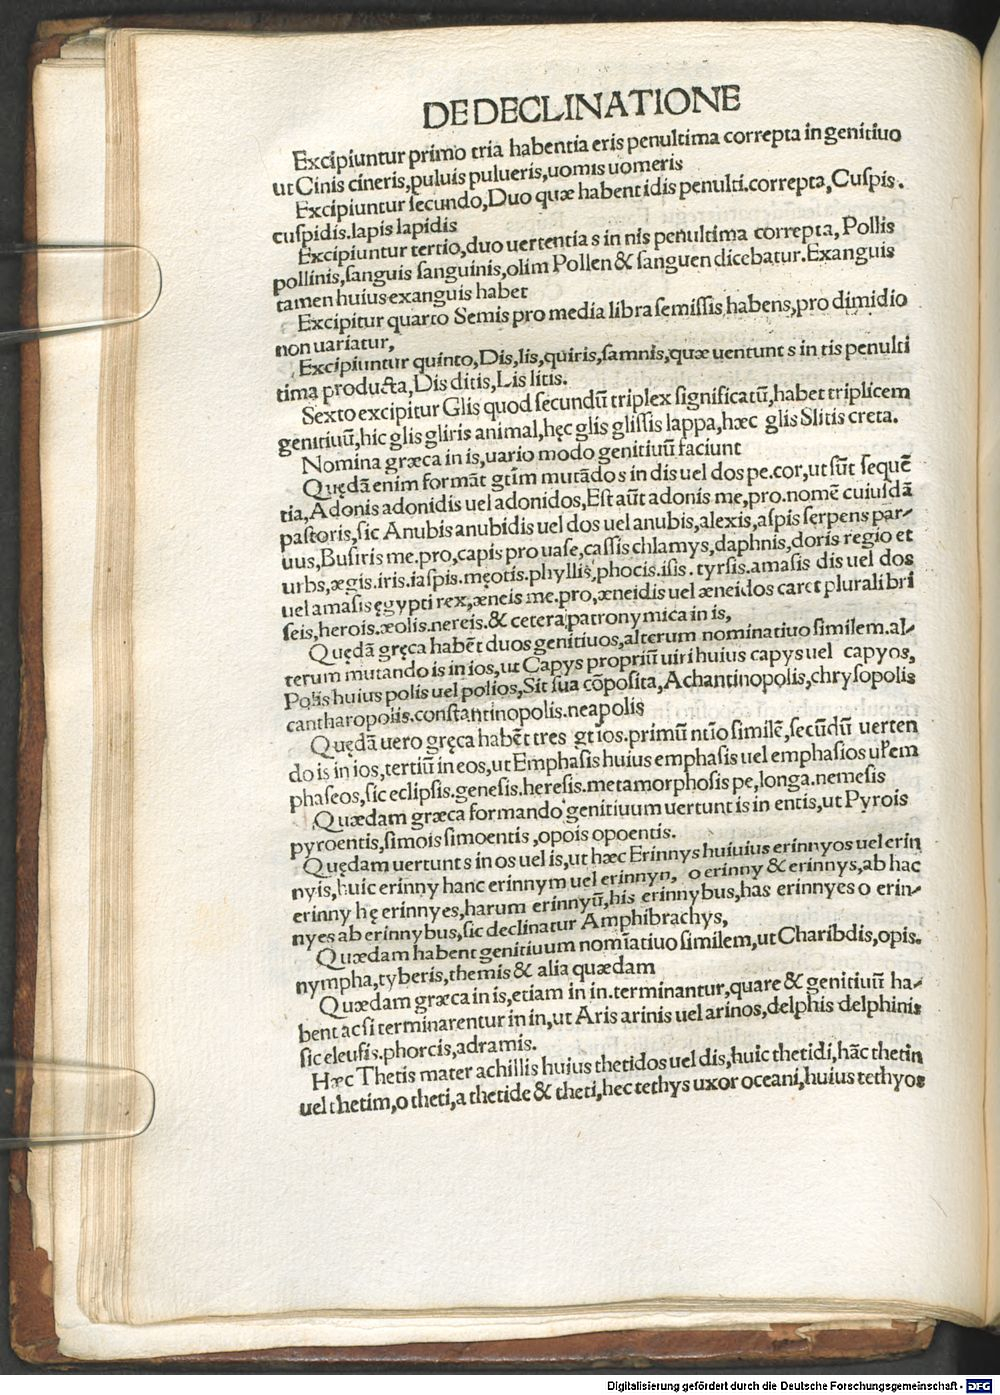 DE DECLINATIONE
Excipiuntur primo tria habentia eris penultima correpta in genitiuo
ut Cinis cineris,puluis pulueris,uomis uomeris
Excipiuntur ſecundo,Duo quæ habent idis penulti.correpta,Cuſpis.
cuſpidis.lapis lapidis
Excipiuntur tertio,duo uertentia s in nis penultima correpta, Pollis
pollinis,ſanguis ſanguinis,olim Pollen & ſanguen dicebatur.Exanguis
tamen huius exanguis habet
Excipitur quarto Semis pro media libra ſemiſſis habens,pro dimidio
non uariatur,
Excipiuntur quinto,Dis,lis,quiris,ſamnis,quæ uertunt s in tis penulti
tima producta,Dis ditis,Lis litis.
Sexto excipitur Glis quod ſecundū triplex ſignificatū,habet triplicem
genitiuū,hic glis gliris animal,hęc glis gliſſis lappa,hæc glis Slitis creta.
Nomina græca in is,uario modo genitiuū faciunt
Quędā enim formāt gtīm mutādo s in dis uel dos pe.cor,ut ſūt ſequē
tia,Adonis adonidis uel adonidos,Eſt aūt adonis me,pro.nomē cuiuſdā
paſtoris,ſic Anubis anubidis uel dos uel anubis,alexis,aſpis ſerpens par-
uus,Buſiris me.pro,capis pro uaſe,caſſis chlamys,daphnis,doris regio et
urbs,ægis.iris.iaſpis.męotis.phyllis,phocis.iſis.tyrſis.amaſis dis uel dos
uel amaſis ęgypti rex,æneis me.pro,æneidis uel æneidos caret plurali bri
ſeis,herois.æolis.nereis.& cetera patronymica in is,
Quędā gręca habēt duos genitiuos,alterum nominatiuo ſimilem.al-
terum mutando is in ios,ut Capys propriū uiri huius capys uel capyos,
Polis huius polis uel polios,Sic ſua cōpoſita,Achantinopolis,chryſopolis
cantharopolis.conſtantinopolis.neapolis
Quędā uero gręca habēt tres gtīos.primū ntīo ſimilē,ſecūdū uerten
do is in ios,tertiū in eos,ut Emphaſis huius emphaſis uel emphaſios ul'em
phaſeos,ſic eclipſis.geneſis.hereſis.metamorphoſis pe,longa.nemeſis
Quædam græca formando genitiuum uertunt is in entis,ut Pyrois
pyroentis,ſimois ſimoentis,opois opoentis.
Quędam uertunt s in os uel is,ut hæc Erinnys huiuius erinnyos uel erin
nyis,huic erinny hanc erinnym uel erinnyn, o erinny & erinnys,ab hac
erinny hę erinnyes,harum erinnyū,his erinnybus,has erinnyes o erin-
nyes ab erinnybus,ſic declinatur Amphibrachys,
Quædam habent genitiuum nomīatiuo ſimilem,ut Charibdis,opis.
nympha,tyberis,themis & alia quædam
Quædam græca in is,etiam in in.terminantur,quare & genitiuū ha-
bent ac ſi terminarentur in in,ut Aris arinis uel arinos,delphis delphinis
ſic eleuſis.phorcis,adramis.
Hæc Thetis mater achillis huius thetidos uel dis,huic thetidi,hāc thetin
uel thetim,o theti,a thetide & theti,hec tethys uxor oceani,huius tethyos
Digitalisierung gefördert durch die Deutsche Forschungsgemeinschaft - DFG